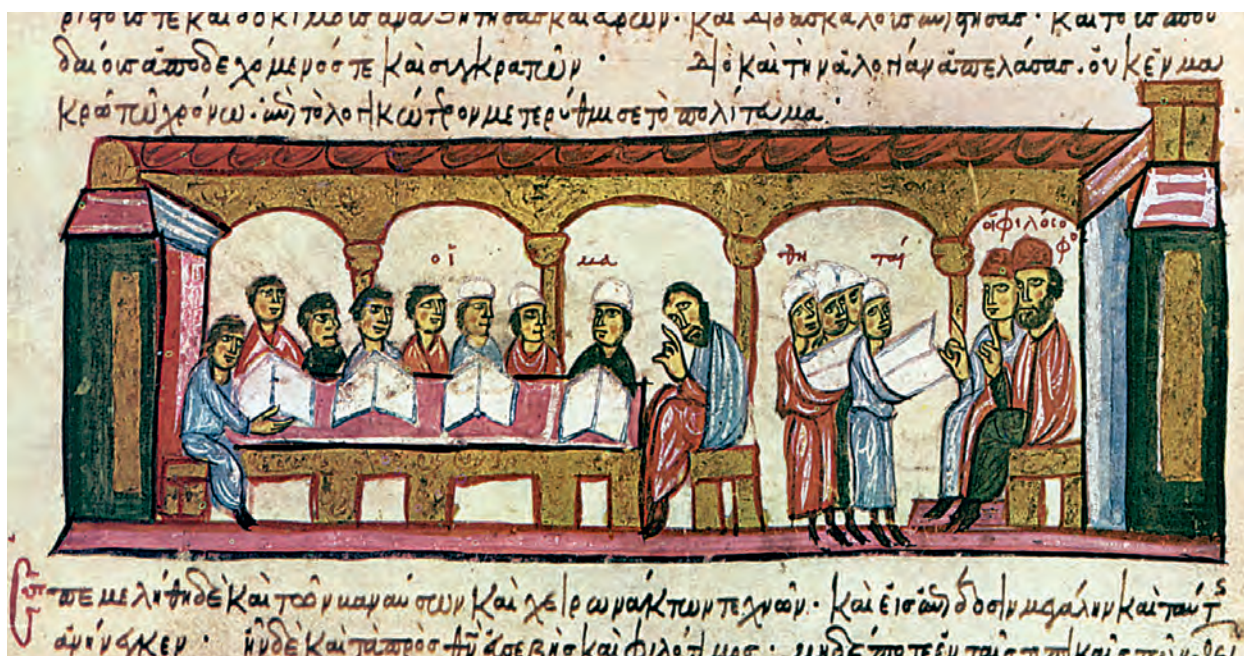 τε καὶ δοκίμοις ἀναζητήσας καὶ εὑρών · καὶ διδασκάλοις · καὶ τοὺς σπου
δαίοις ἀποδεχόμενός τε καὶ συγκροτῶν · Διὸ καὶ τὴν ἀλογίαν ἀπελάσας · οὐκ ἐν μα
κρῶ πω χρόνω · ἐπὶ τὸ λογικώτερον μετερύθμισε τὸ πολίτευμα ·
οἱ μα θη ταί
οἱ φιλόσοφοι
ἐπεμελήθη δὲ καὶ τῶν βαναύσων καὶ χειρωνάκτων τεχνῶν · καὶ εἰς ἐπίδοσιν μεγάλην καὶ ταύτας
ἀνήνεγκεν · ἦν δὲ καὶ τὰ πρὸς θν εὐσεβὴς καὶ φιλότιμος · μηδέποτε ἐν ταῖς